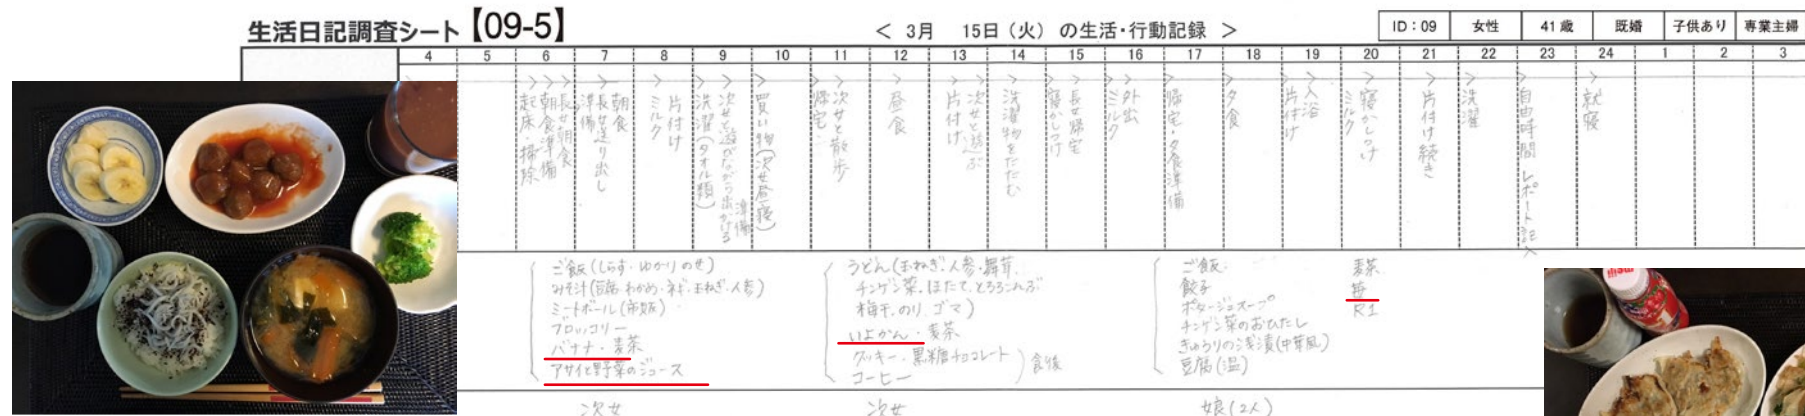 生活日記調査シート【09-5】
< 3月 15日(火)の生活・行動記録 >
ID:09 女性 41歳 既婚 子供あり 専業主婦
4 5 6 7 8 9 10 11 12 13 14 15 16 17 18 19 20 21 22 23 24 1 2 3
起床・掃除
朝食準備
長女朝食
準備
長女送り出し
朝食
ミルク
片付け
洗濯(タオル類)
次女と遊びながら出かける準備
買い物(次女昼寝)
帰宅
次女と散歩
昼食
片付け
次女と遊ぶ
洗濯物をたたむ
寝かしつけ
長女帰宅
ミルク
外出
帰宅・夕食準備
夕食
片付け
入浴
ミルク
寝かしつけ
片付け続き
洗濯
自由時間 レポート記入
就寝
ご飯(しらす・ゆかりのせ)
みそ汁(豆腐・わかめ・ネギ・玉ねぎ・人参)
ミートボール(市販)
ブロッコリー
バナナ・麦茶
アサイと野菜のジュース
うどん(玉ねぎ・人参・舞茸
チンゲン菜・ほたて・とろろこんぶ
梅干・のり・ゴマ)
いよかん・麦茶
クッキー・黒糖チョコレート
コーヒー
食後
ご飯
餃子
ポタージュスープ
チンゲン菜のおひたし
きゅうりの浅漬(中華風)
豆腐(温)
麦茶
苺
R1
次女
次女
娘(2人)